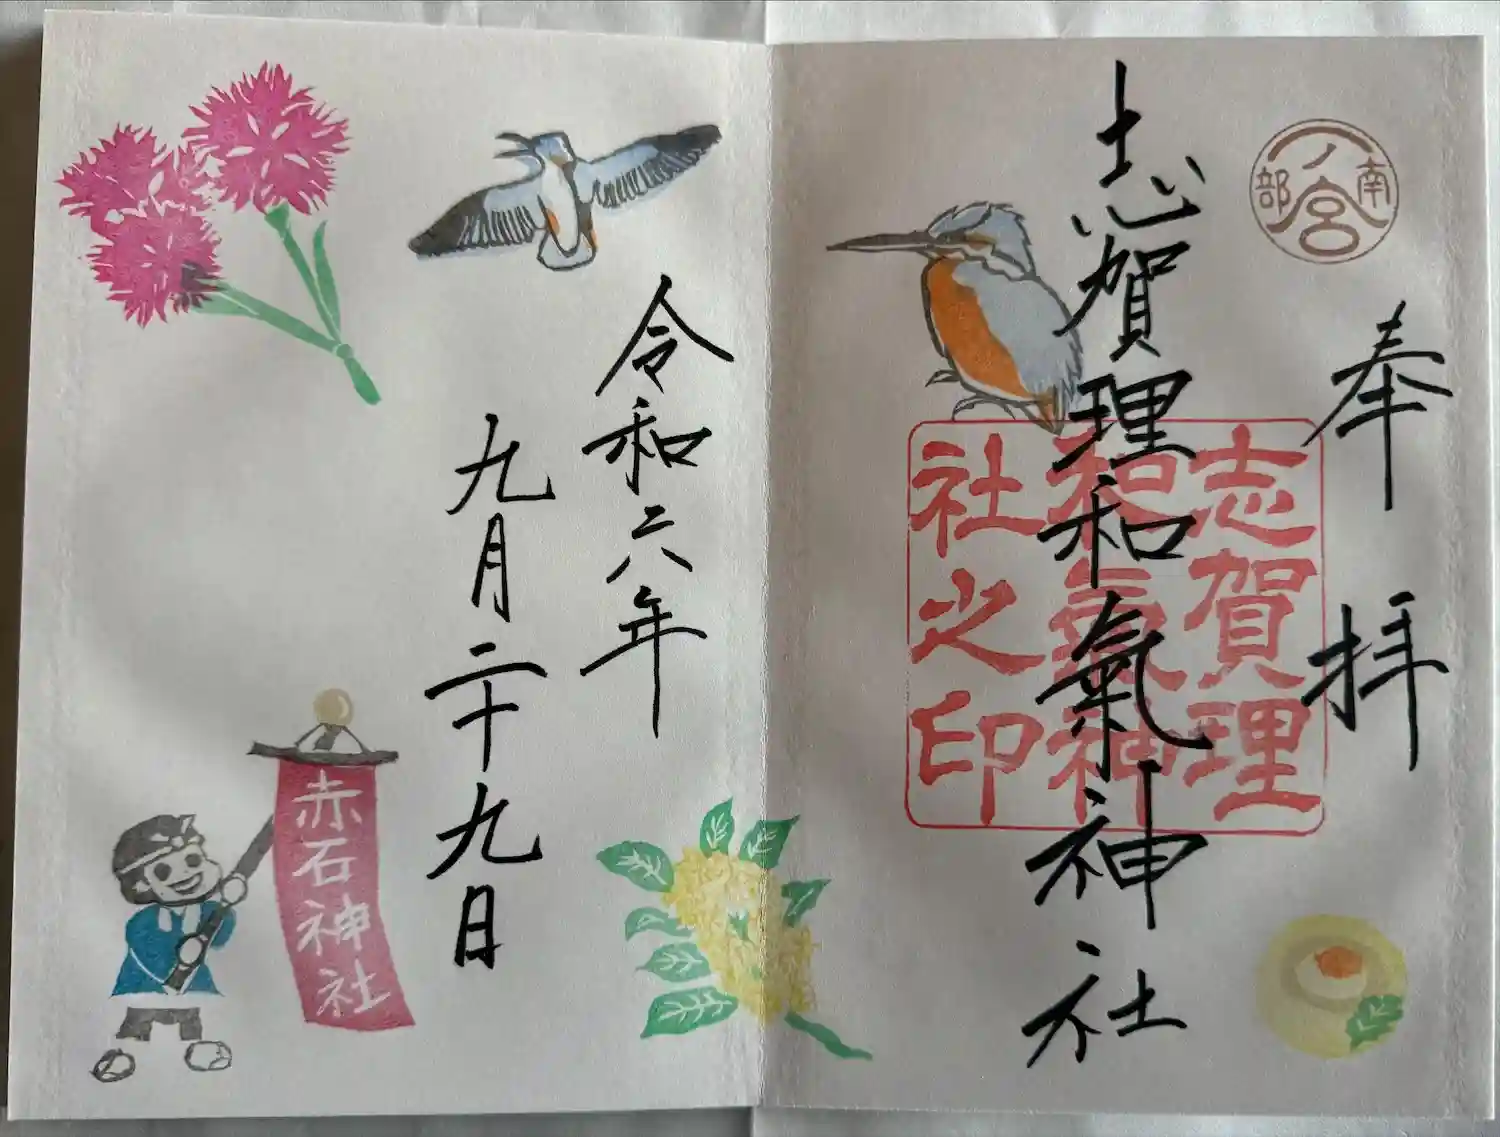 奉拝
南部一ノ宮
志賀理和氣神社
志賀理
和氣神
社之印
令和六年
九月二十九日
赤石神社